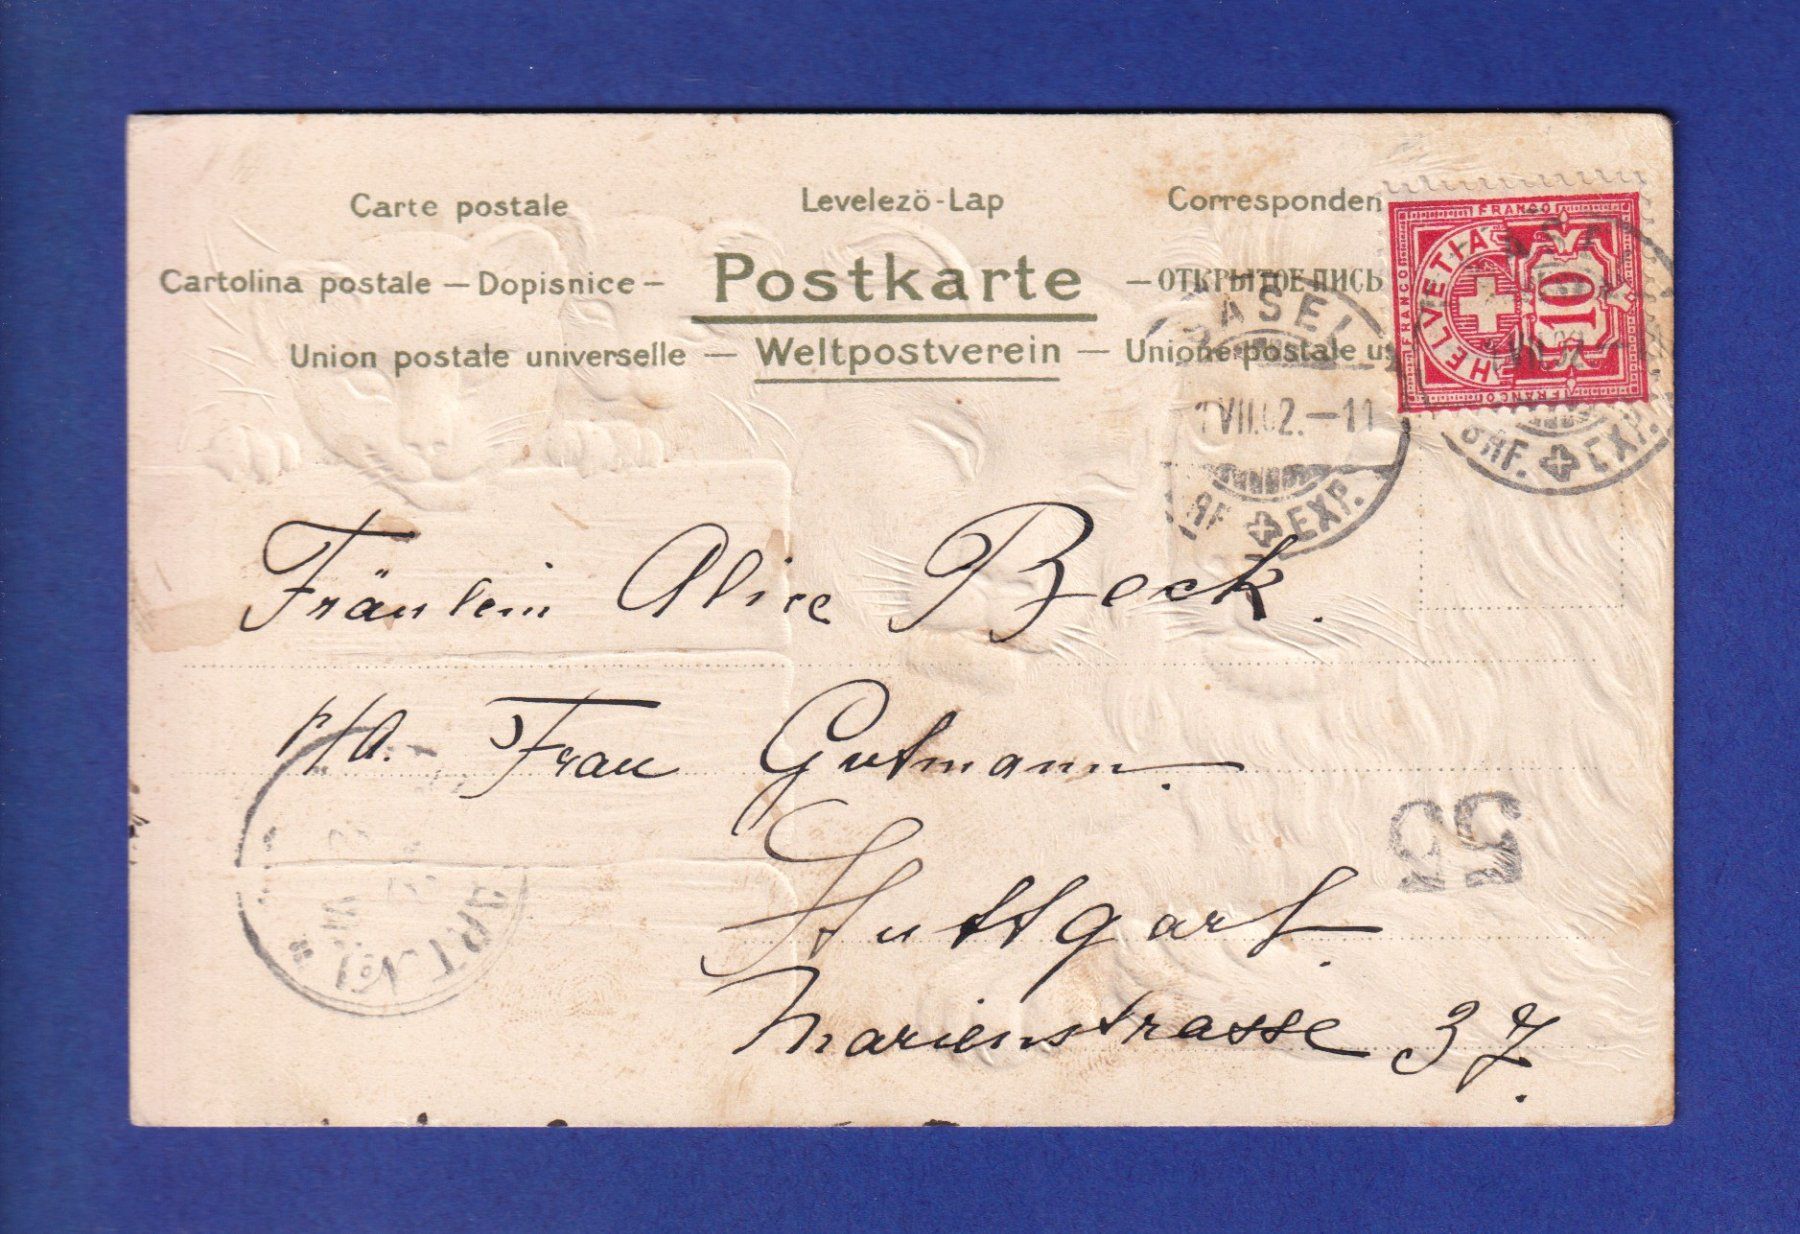 Carte postale Levelezö-Lap Corresponden
Cartolina postale — Dopisnice – Postkarte — ОТКРЫТОЕ ПИСЬ
Union postale universelle — Weltpostverein — Unione postale u
FRANCO
FRANCO
HELVETIA
10
FRANCO
BASEL
VII.02.–11
BRF. EXP.
BRF. EXP.
Fräulein Alice Beck.
p/A. Frau Gutmann.
Stuttgart.
Marienstrasse 37.
53
ART No1
VII